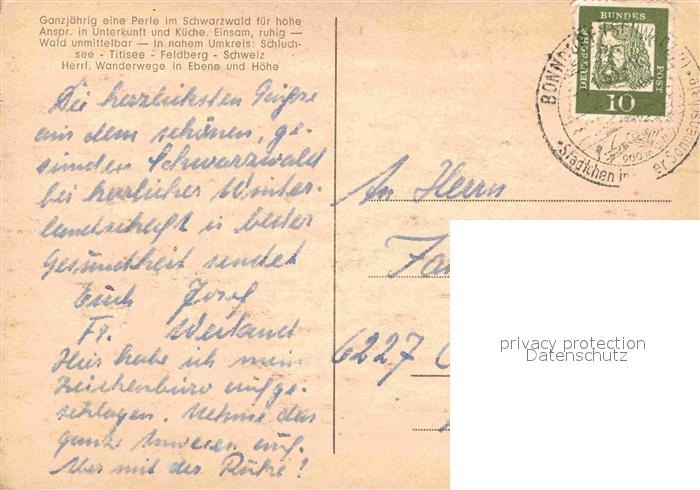 Ganzjährig eine Perle im Schwarzwald für hohe
Anspr. in Unterkunft und Küche. Einsam, ruhig —
Wald unmittelbar — In nahem Umkreis: Schluch-
see - Titisee - Feldberg - Schweiz
Herrl. Wanderwege in Ebene und Höhe
Die herzlichsten Grüsse
aus dem schönen, ge-
sunden Schwarzwald
bei herrlicher Winter-
landschaft in bester
Gesundheit sendet
Euch Josef
Fr. Weiland
Hier habe ich mein
Zeichenbüro aufge-
schlagen. Nehme das
ganze Anwesen auf.
Aber mit der Ruhe!
DEUTSCHE
BUNDES
POST
10
BONNDORF
900 m
Städtchen in
er Sonnenschein
An Herrn
Fa
6227
privacy protection
Datenschutz